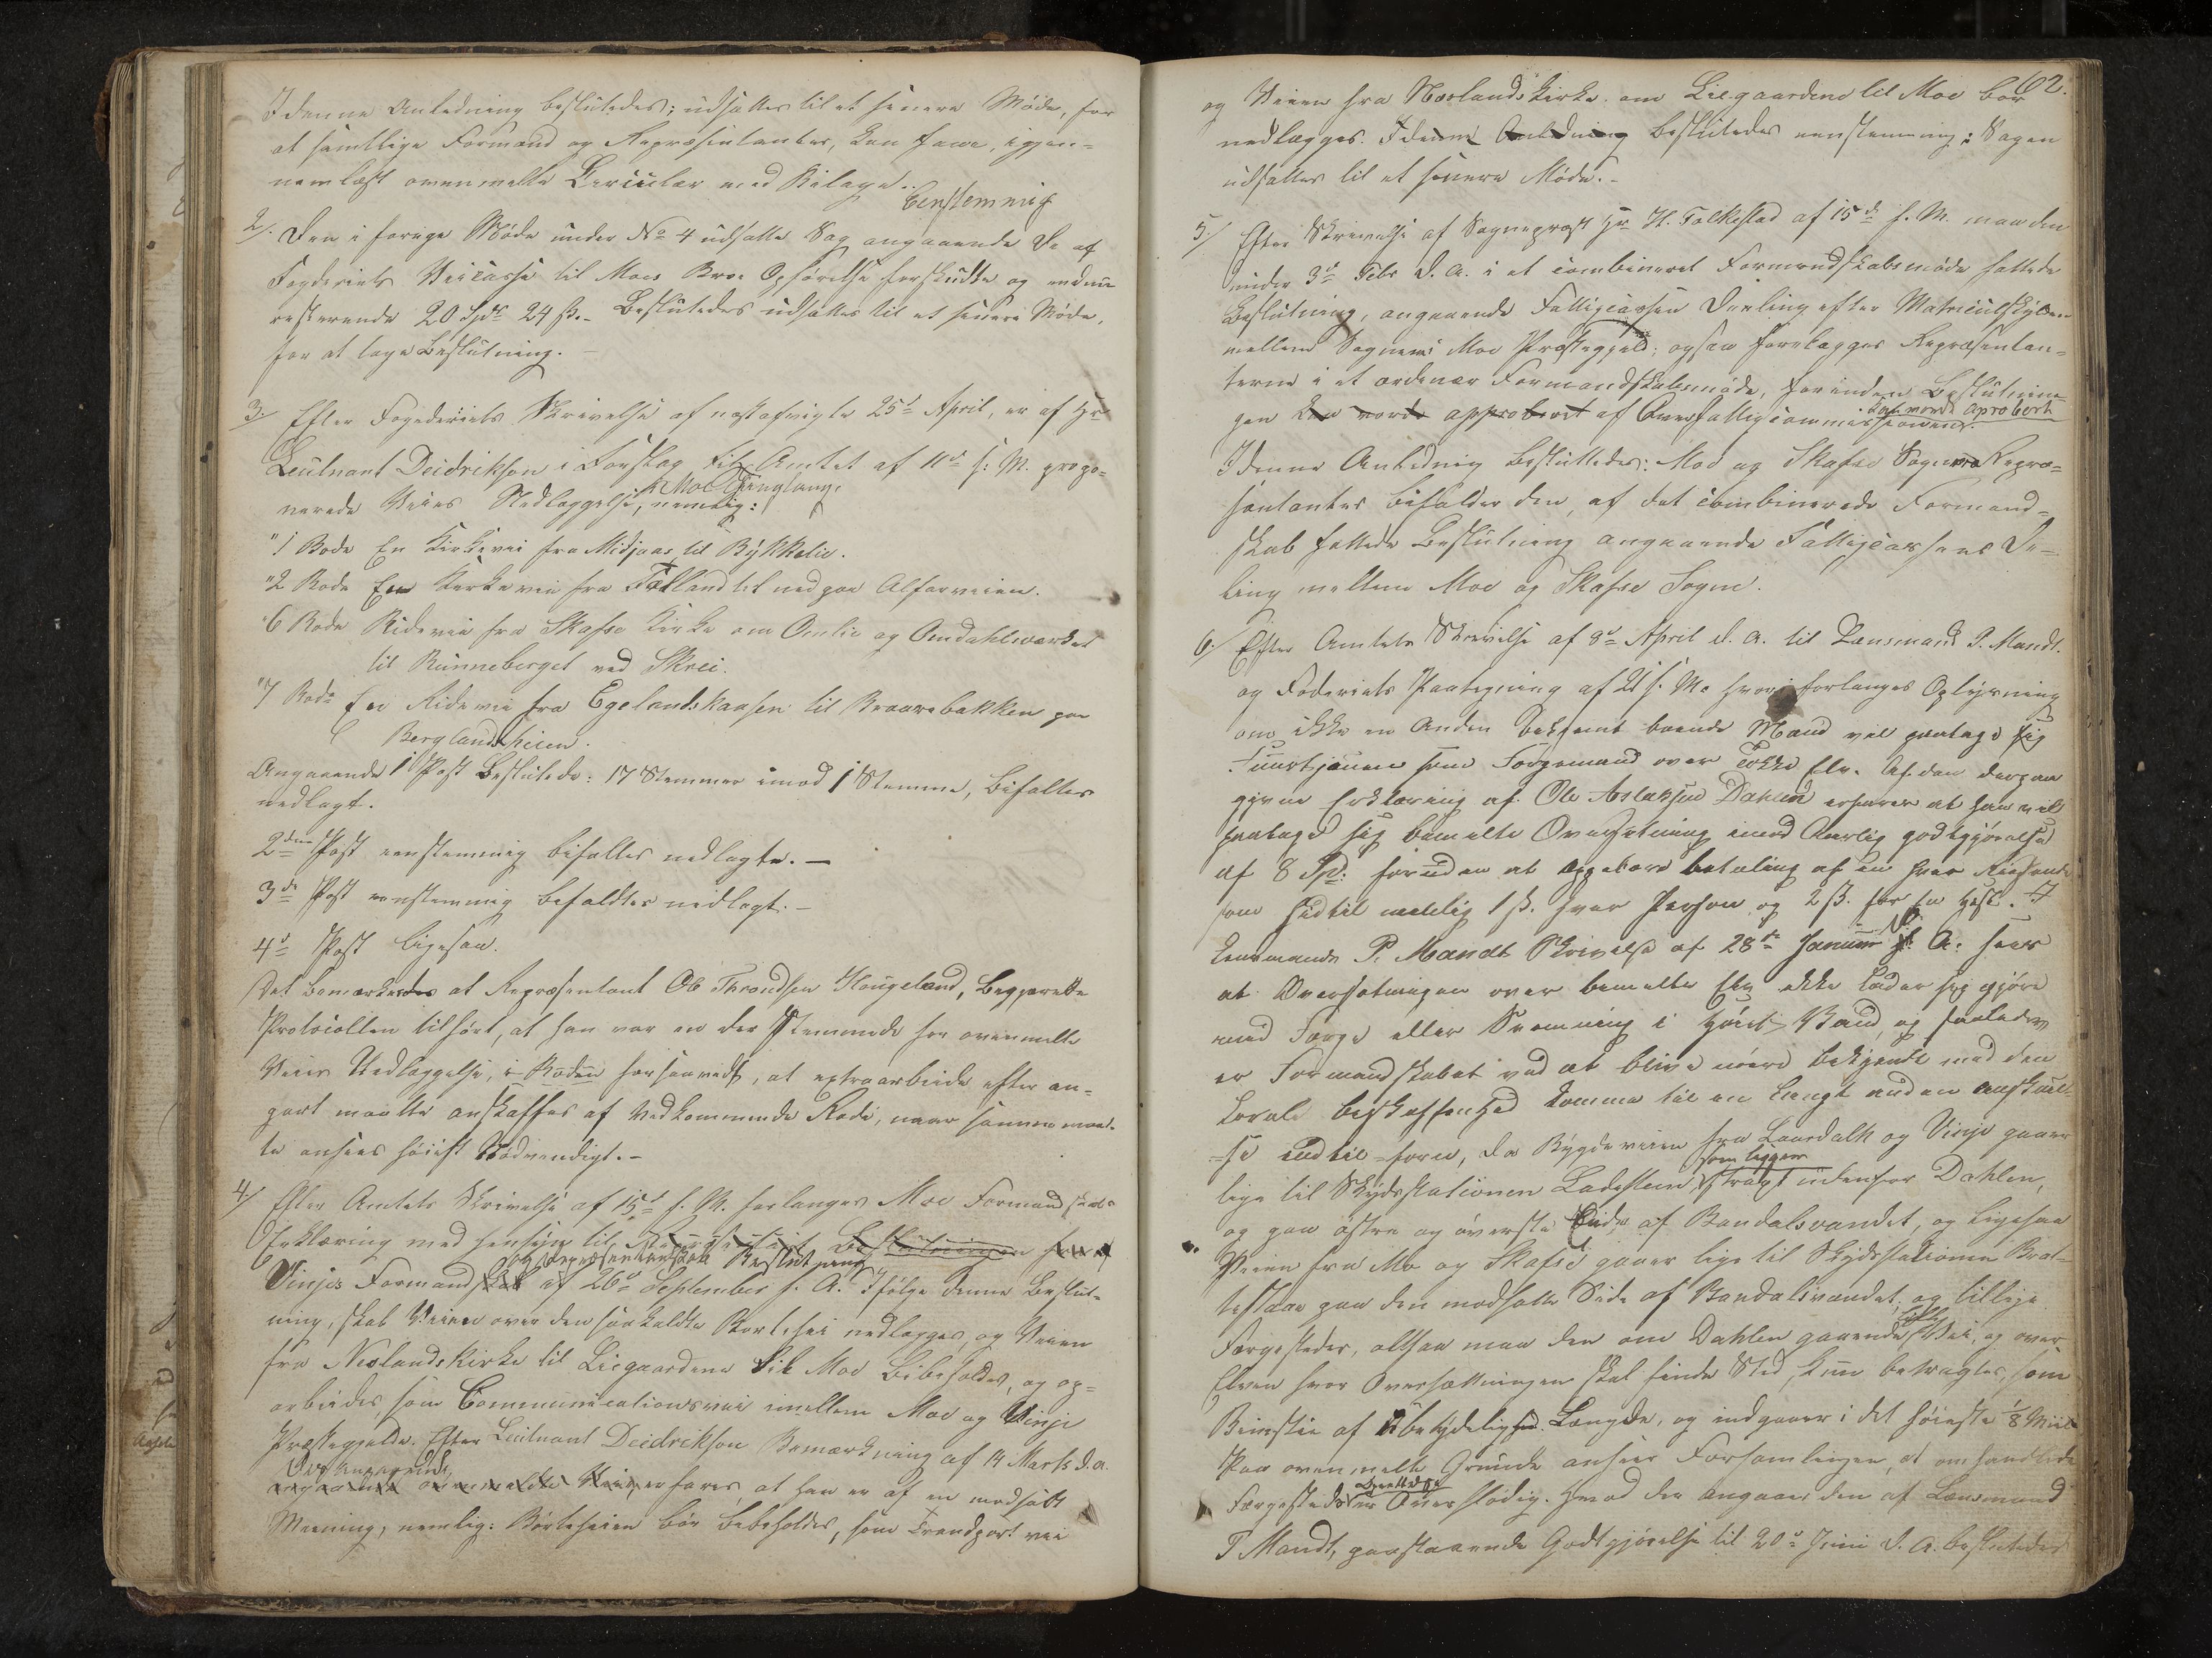 I denne Anledning besluttedes; udsættes til et senere Møde, for
at samtlige Formænd og Repræsentanter, kan faae, igjen-
nemlæst ovenmelte Circulær med Bilage.
Eenstemmig
2/. Den i forrige Møde under No 4 udsatte Sag angaaende De af
Fogderiets Veicasse til Moes Broe Opførelse forskudte og endnu
resterende 20 Spd 24 ß. Besluttedes udsættes til et senere Møde,
for at tage Beslutning. —
3/ Efter Fogderiets Skrivelse af næstafvigte 25d April, er af Hr
Leutnant Deidrikson i Forslag til Amtet af 11d f: M. propo-
nerede Veies Nedlæggelse, nemlig:
i Moe Tinglaug.
"1 Rode En Kirkevei fra Midjaas til Bykkelie.
"2 Rode En Kirkevei fra Tælland til ned paa Alfarveien.
"6 Rode Ridevei fra Skafse Kirke om Omlie og Omdahlsværket
til Runneberget ved Skrei.
"7 Rode En Ridevei fra Egelandskaasen til Braarebakken paa
Berglandsheien.
Angaaende 1 Post Besluttede: 17 Stemmer imod 1 Stemme, bifaltes
nedlagt.
2den Post eenstemmig bifaltes nedlagte. —
3de Post eenstemmig bifaldtes nedlagt. —
4d Post ligesaa.
Det bemærkedes at Repræsentant Ole Throndsen Haugeland, begjærede
Protocollen tilført, at han var en der stemmede for ovenmelte
Veies Nedlæggelse, i Roden forsaavidt, at extraarbeide efter an-
part maatte anskaffes af Vedkommende Rode, naar saadan maat-
te ansees høist Nødvendigt. —
4/ Efter Amtets Skrivelse af 15d f. M. forlanges Moe Formandskabs
Erklæring med hensyn til Beslutningen fra
og Repræsentantskab Beslutning
Vinjes Formandskab af 26d September f. A. Ifølge denne Beslut-
ning, skal Veien over den saakaldte Bortehei nedlægges, og Veien
fra Neslandskirke til Liegaardene til Moe Bibeholdes, og op-
arbeides, som Communicationsvei imellem Moe og Vinje
Præstegjelde. Efter Leutnant Deidrikson Bemærkning af 14 Marts d. a.
Desangaaende
angaaende ovenmeldte Veie, erfares, at han er af en modsatt
Meening, nemlig: Børteheien bør bebeholdes, som Trandport vei
62.
og Veien fra Neslandskirke om Liegaardene til Moe bør
nedlægges. I denne Anledning besluttedes eenstemmig: Sagen
udsættes til et senere Møde. —
5/ Efter Skrivelse af Sognepræst Hr H. Folkestad af 15d f. M. maa den
under 3d Febr d. A. i et combineret Formandskabsmøde fattede
Beslutning, angaaende Fattigcassen Deeling efter Matriculskylden
mellem Sognene i Moe Præstegjeld; ogsaa forelægges Repræsentan-
terne i et ordenær Formandskabsmøde, forinden Beslutnin-
gen kan vorde approberet af Overfattigcommissionen.
kan vorde aprobert
I denne Anledning besluttedes: Moe og Skafse Sognes Repræ-
sentanter bifalder den, af det combinerede Formand-
skab fattede Beslutning angaaende Fattigcassens De-
ling mellem Moe og Skafse Sogne.
6/ Efter Amtets Skrivelse af 8d April d. A. til Lensmand P. Mandt.
og Foderiets Paategning af 21 f. M. hvori forlanges Oplysning
om ikke en Anden bekvemt boende Mand vil paatage sig
Functionen som Færgemand over Tokke Elv. Af den derpaa
givne Erklæring af Ole Aslaksen Dahlen erfares at han vil
paatage sig bemelte Oversætning imod Aarlig godtgjørelse
af 8 Spd: foruden at oppebære betaling af en hver Reisende
som hidtil nemlig 1 ß. hver Person og 2 ß. for en Hest. I
Lensmands P. Mandt Skrivelse af 28de Januar d. A: sees
at Oversætningen over bemelte Elv ikke lader sig gjøre
med Færge eller Svømning i høit Vand, og saaledes
er Formandskabet ved at blive nøiere bekjendt med den
Locale beskaffenhed komme til en langt anden anskuel-
-se end til-forn, da Bygdeveien fra Laardalh og Vinje gaaer
lige til Skydsstationen Ladesteen strax udenfor Dahlen,
som ligger
og paa østre og øverste Ende af Bandalsvandet, og ligesaa
Veien fra Mo og Skafse gaaer lige til Skydsstationen Brat-
testaae paa den modsatte Side af Bandalsvandet, og tillige
Færgesteder, altsaa maa den om Dahlen gaaende Vei, og over
Elven hvor Oversættningen skal finde Sted, kun betragtes, som
Benstie af Ubetydelig Længde, og indgaaer i det høieste 1/8 Miil
Paa ovenmelte Grunde ansees Forsamlingen, at omhandlede
Færgested er Overflødig. Hvad der angaaer den af Lensmand
P Mandt, paastaaende Godtgjørelse til 20d Juni d. A. besluttedes